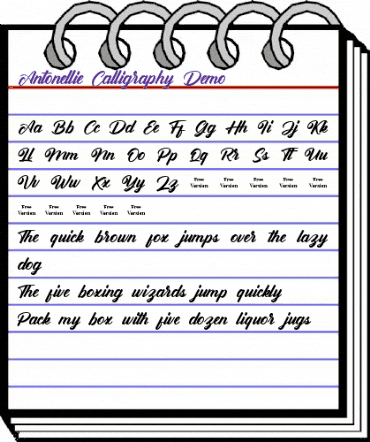 Antonellie Calligraphy Demo
Aa Bb Cc Dd Ee Ff Gg Hh Ii Jj Kk
Ll Mm Nn Oo Pp Qq Rr Ss Tt Uu
Vv Ww Xx Yy Zz Free Version Free Version Free Version Free Version Free Version
Free Version Free Version Free Version Free Version Free Version
The quick brown fox jumps over the lazy
dog
The five boxing wizards jump quickly
Pack my box with five dozen liquor jugs